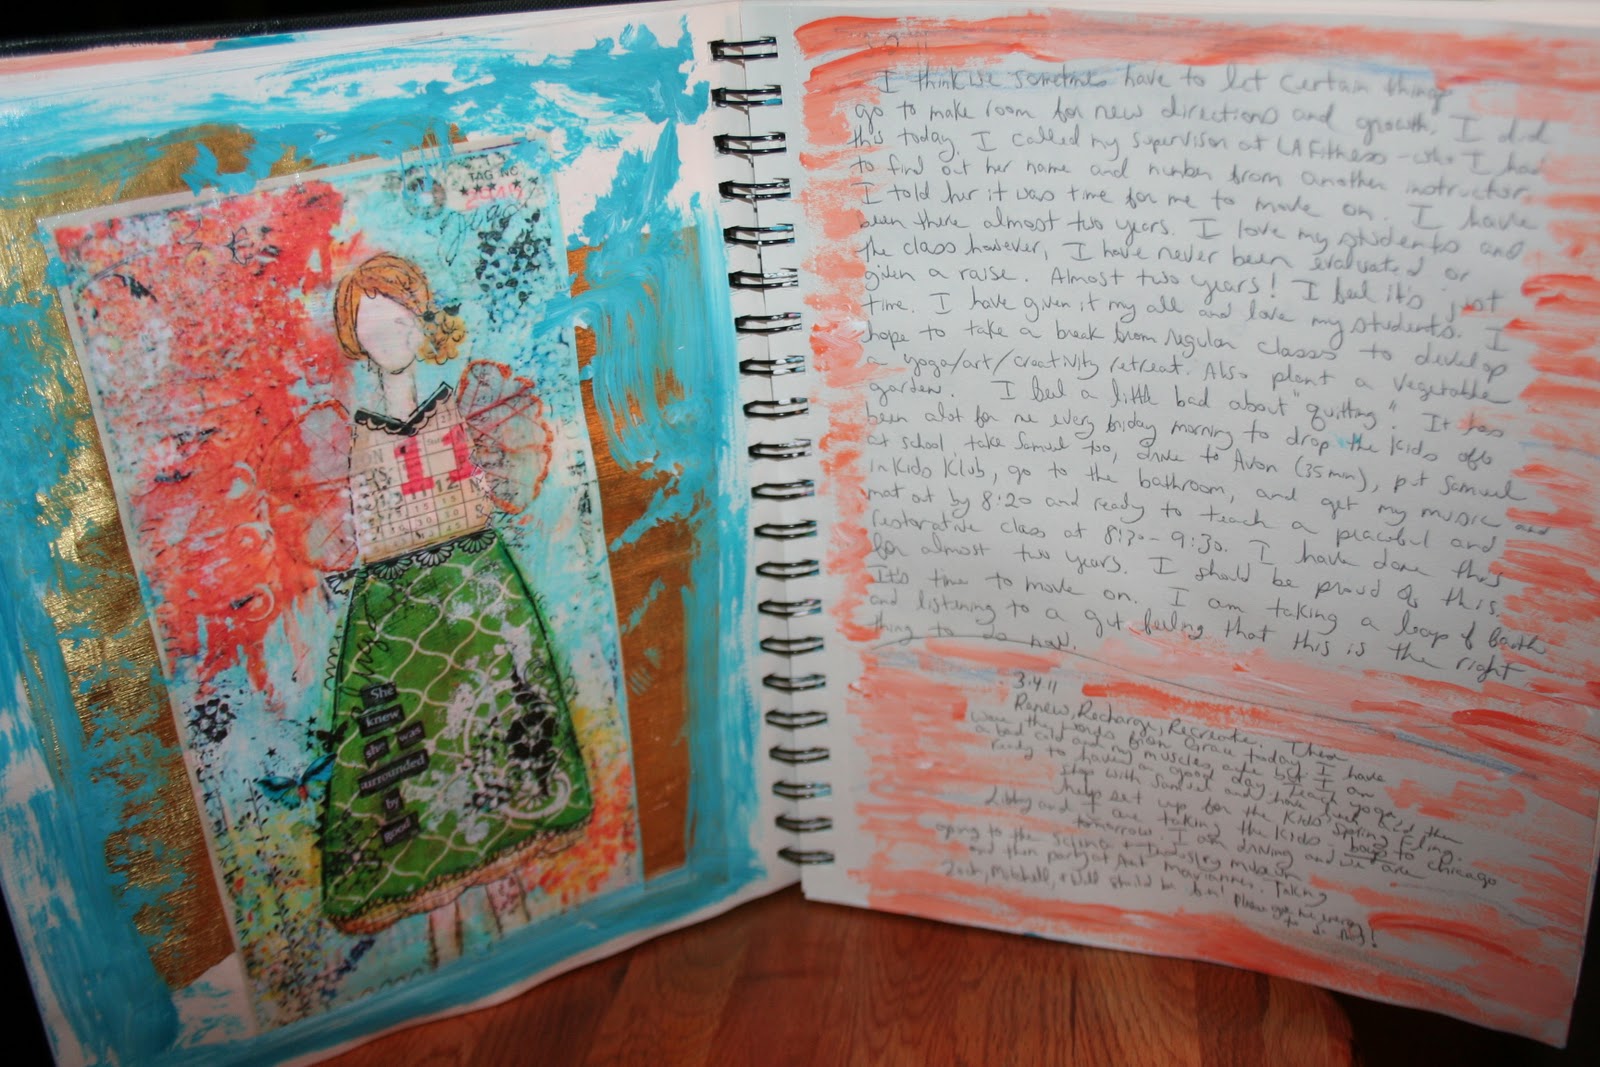 TAG NO.
11
12
She
knew
she was
surrounded
by
good
3.2.11
I think we sometimes have to let certain things
go to make room for new directions and growth. I did
this today. I called my supervisor at LA Fitness - who I had
to find out her name and number from another instructor.
I told her it was time for me to move on. I have
been there almost two years. I love my students and
the class however, I have never been evaluated or
given a raise. Almost two years! I feel it's just
time. I have given it my all and love my students. I
hope to take a break from regular classes to develop
a yoga/art/creativity retreat. Also plant a vegetable
garden. I feel a little bad about "quitting". It has
been alot for me every friday morning to drop the kids off
at school, take Samuel too, drive to Avon (35 min), put Samuel
in Kids Klub, go to the bathroom, and get my music and
mat out by 8:20 and ready to teach a peaceful and
restorative class at 8:30-9:30. I have done this
for almost two years. I should be proud of this.
It's time to move on. I am taking a leap of faith
and listening to a gut feeling that this is the right
thing to do now.
3.4.11
Renew, Recharge, Recreate. These
were the words from Grace today. I have
a bad cold and my muscles ache but I am
ready to have a good day, teach yoga,
stop with Samuel and have lunch and then
help set up for the Kids Spring Fling.
Libby and I are taking the kids - boys to Chicago
tomorrow. I am driving and we are
going to the Science + Industry museum
and then party at Aunt Maryanne's. Taking
Zach, Mitchell, + Will should be fun! Please give me energy
to do this!